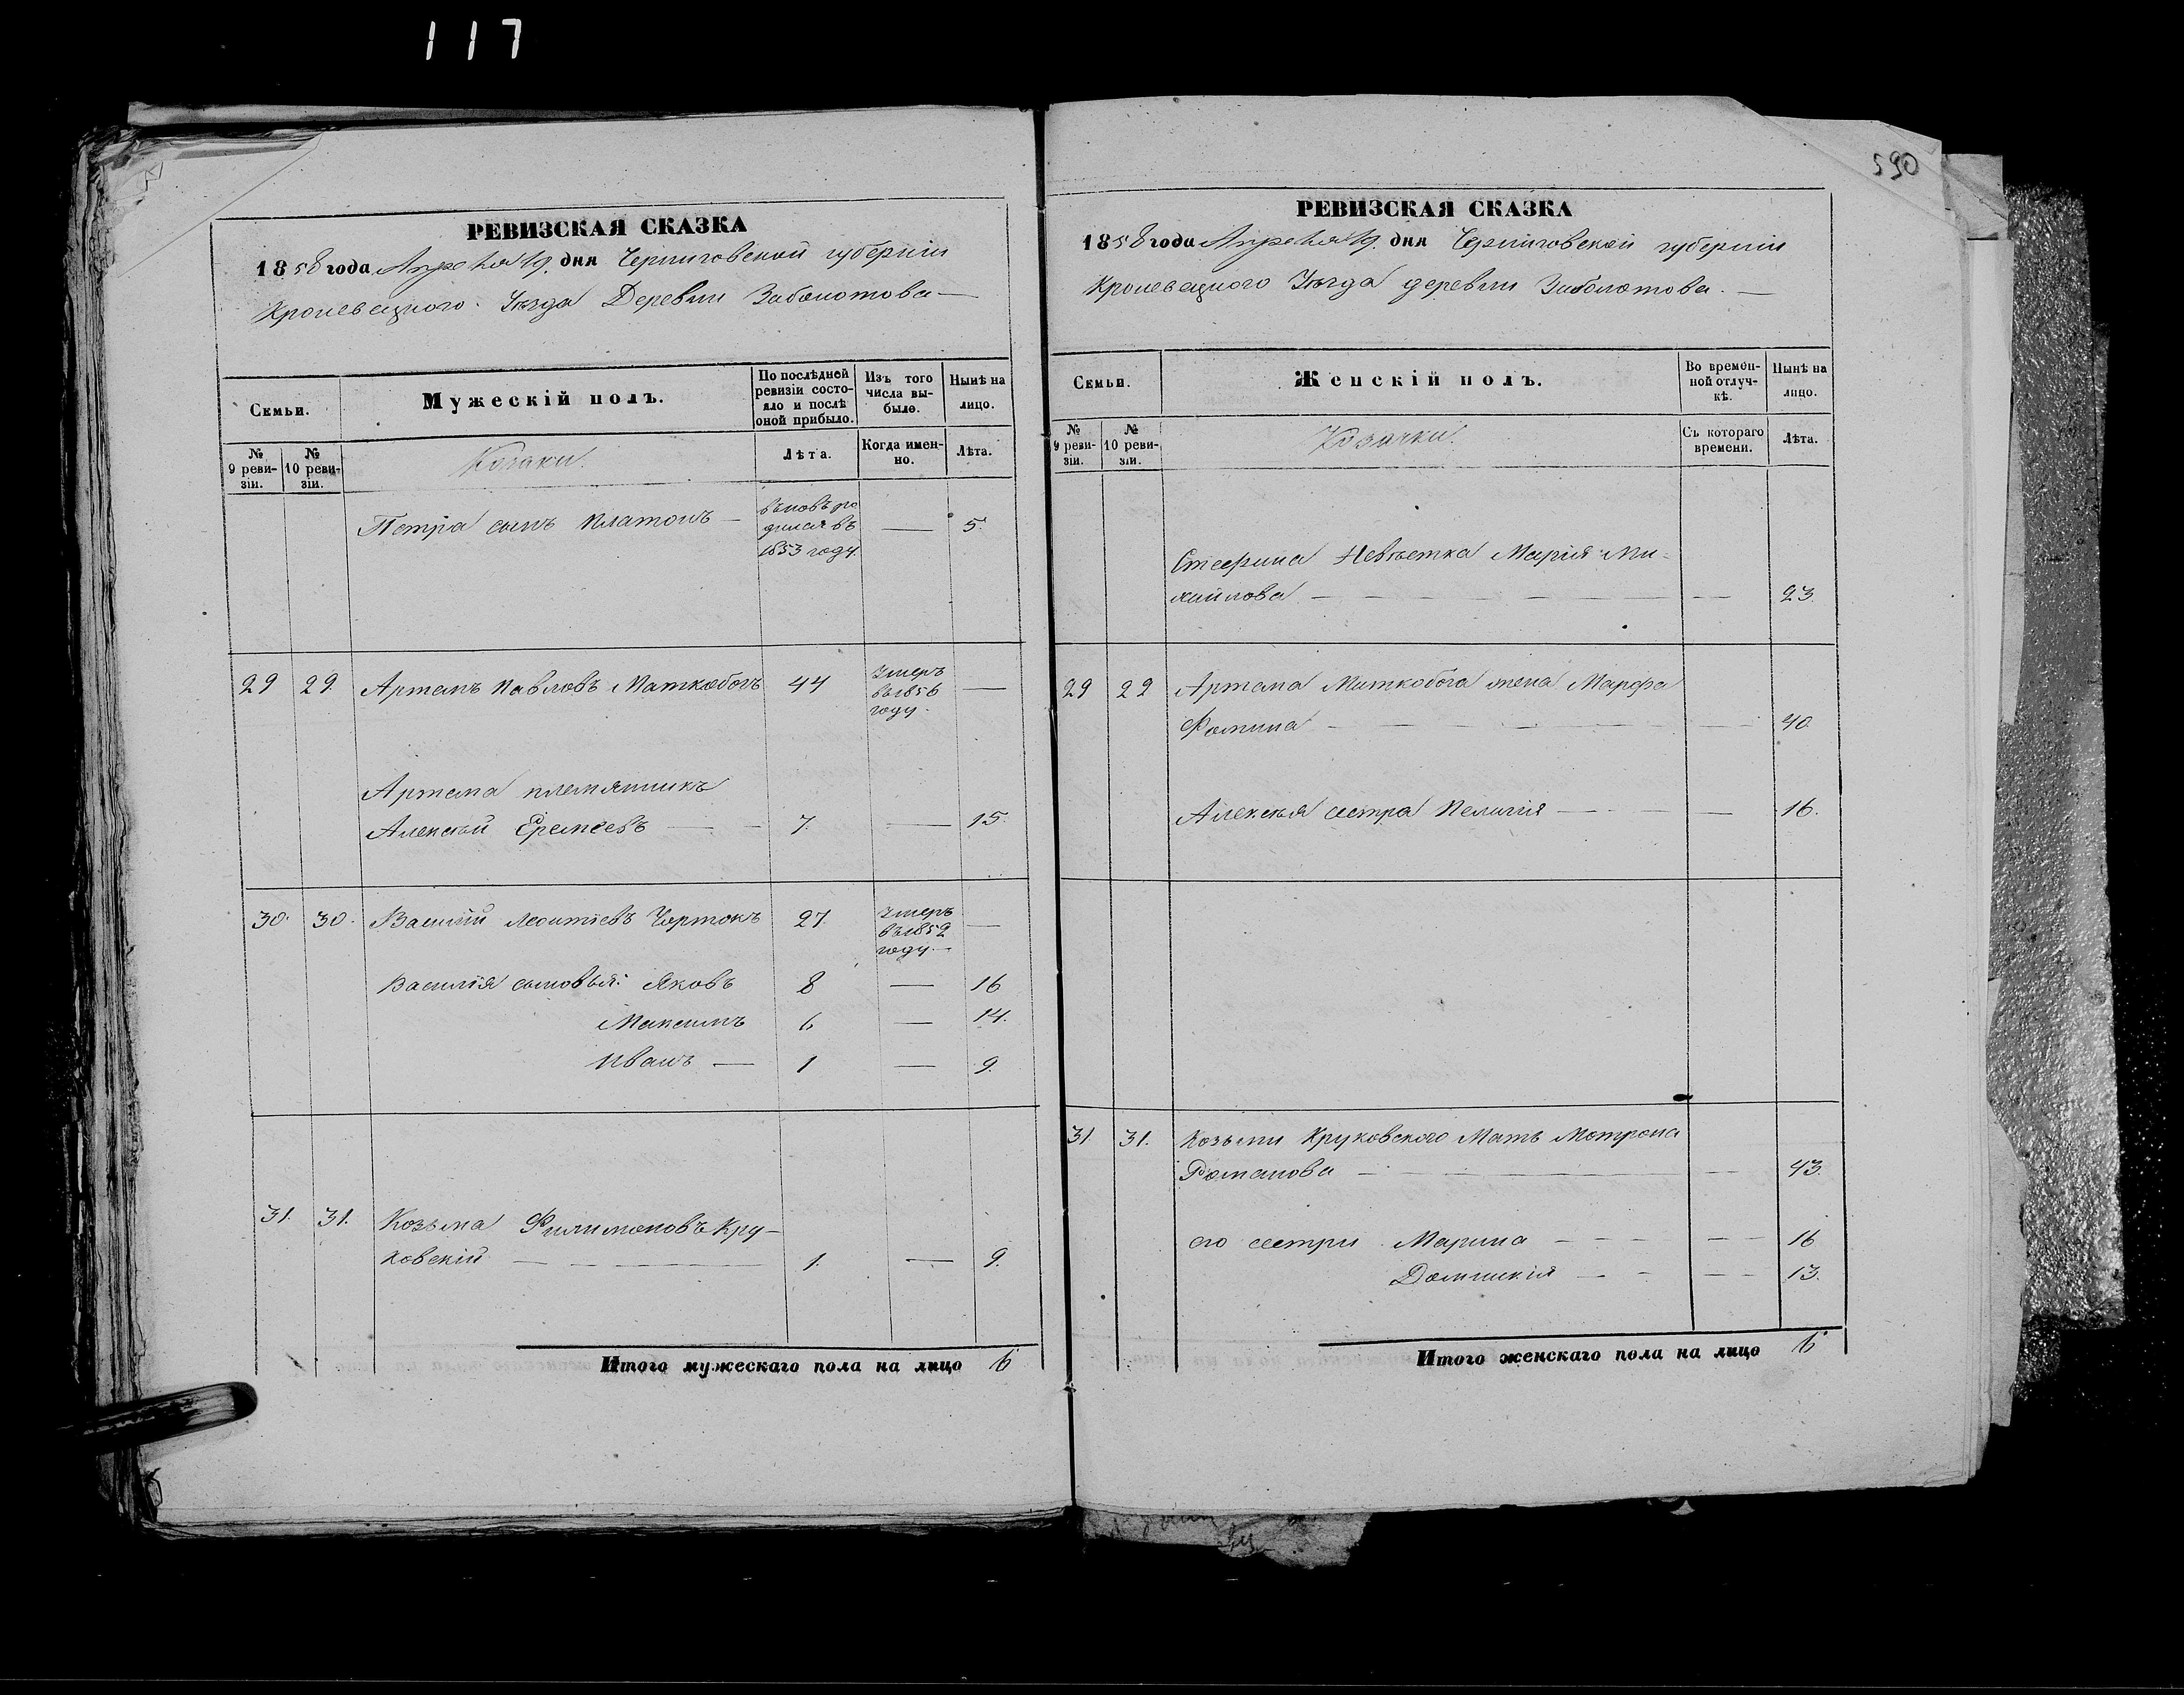 117
590
РЕВИЗСКАЯ СКАЗКА
1858 года Апреля 19. дня Черниговской губерніи
Кролевецкого Уѣзда Деревни Заболотова —
Семьи.
Мужескій полъ.
По послѣдней ревизіи состояло и послѣ оной прибыло.
Изъ того числа выбыло.
Нынѣ на лицо.
№ 9 ревизіи.
№ 10 ревизіи.
Козаки.
Лѣта.
Когда именно.
Лѣта.
Петра сынъ Платонъ — вновь родился въ 1853 году. — 5.
29 29. Артемъ Павловъ Маткобогъ 44 Умеръ въ 1856 году. —
Артема племянникъ
Алексѣй Еремѣевъ — — 7. — 15.
30. 30. Василій Леонтіевъ Чортокъ 27 Умеръ въ 1852 году. —
Василія сыновья: Яковъ 8 — 16
Максимъ 6 — 14.
Иванъ — 1 — 9.
31. 31. Козьма Филимоновъ Кру-
ковскій — 1. — 9.
Итого мужескаго пола на лицо 6
РЕВИЗСКАЯ СКАЗКА
1858 года Апреля 19. дня Черниговской губерніи
Кролевецкого Уѣзда деревни Заболотова. —
Семьи.
Женскій полъ.
Во временной отлучкѣ.
Нынѣ на лицо.
№ 9 ревизіи.
№ 10 ревизіи.
Козачки.
Съ котораго времени.
Лѣта.
Невѣстка Марія Ми-
хайлова — — 23.
29 29 Артема Маткобога жена Марфа
Фомина — 40.
Алексѣя сестра Пелагія — — 16.
31 31. Козьми Круковского Мать Мотрона
Романова — — 43.
его сестри Марина — — 16
Домникія — — 13.
Итого женскаго пола на лицо 6